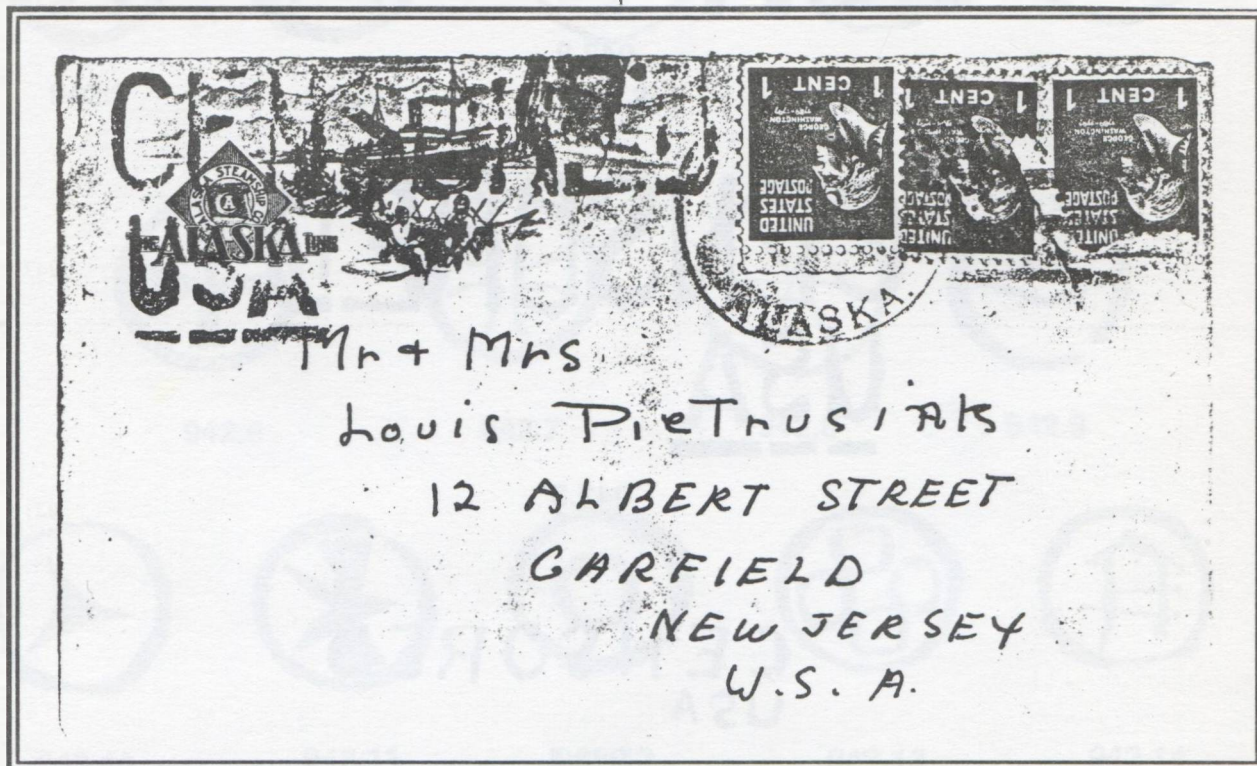 CENSORED
USA
ALASKA STEAMSHIP CO
THE ALASKA LINE
1 CENT 1
GEORGE WASHINGTON
UNITED STATES POSTAGE
1 CENT 1
UNITED STATES POSTAGE
1 CENT 1
GEORGE WASHINGTON
UNITED STATES POSTAGE
ALASKA
Mr + Mrs
Louis PieTrusiAk
12 ALBERT STREET
GARFIELD
NEW JERSEY
U.S. A.
CENSORED
USA